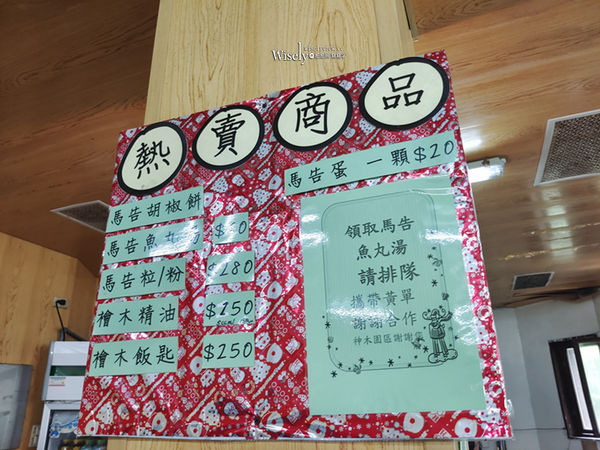 Wisely
熱賣商品
馬告蛋 一顆$20
馬告胡椒餅
馬告魚丸湯
馬告粒/粉 $280
檜木精油 $250
檜木飯匙 $250
領取馬告
魚丸湯
請排隊
攜帶黃單
謝謝合作
神木園區謝謝您